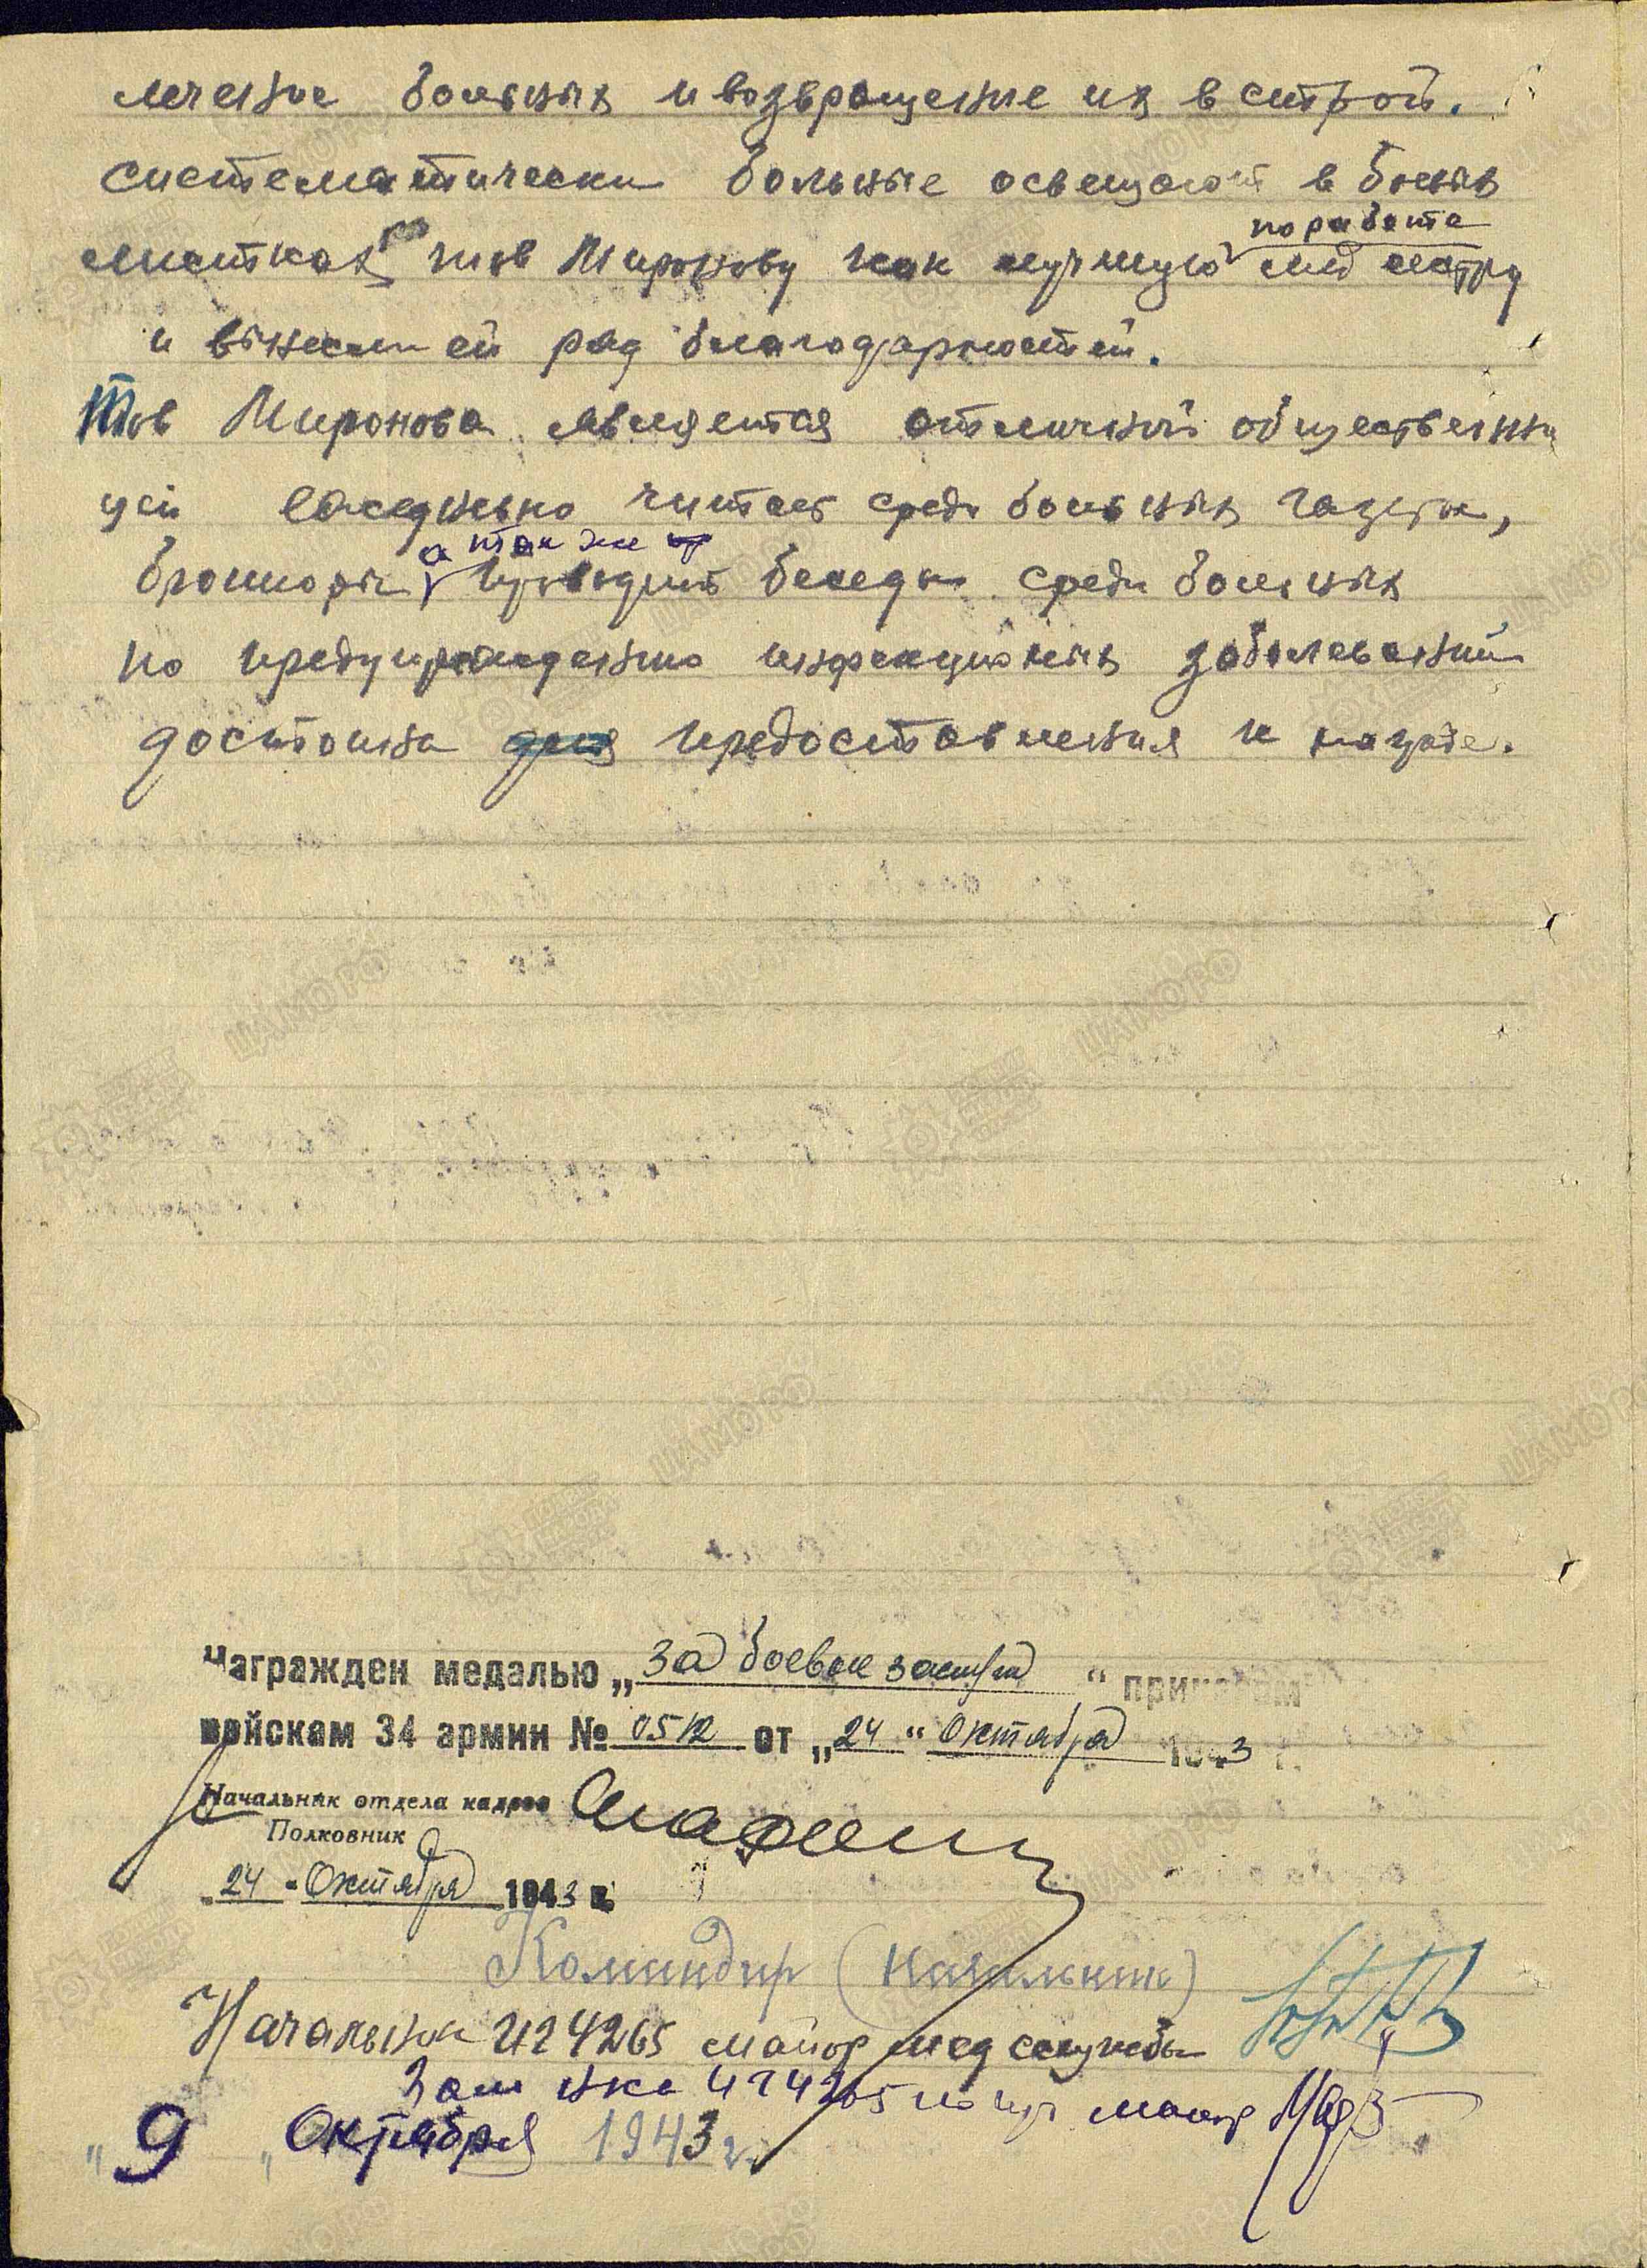 лечение больных и возвращение их в строй.
систематически больные освещают в боевых
по работе
листках тов Миронову как лучшую мед сестру
и вынесли ей ряд благодарностей.
Тов Миронова является отличной общественни
цей ежедневно читает среди больных газеты,
а так же
брошюры, проводит беседы среди больных
по предупреждению инфекционых заболеваний
достойна для предоставления к награде.
Награжден медалью „За боевые заслуги“ приказом
войскам 34 армии № 0512 от „24“ Октября 1943 г.
Начальник отдела кадров
Полковник
24 - Октября 1943 г.
Командир (Начальник)
Начальник 4265 майор мед службы
Зам нка 4265 майор
„9„ Октября 1943 г.